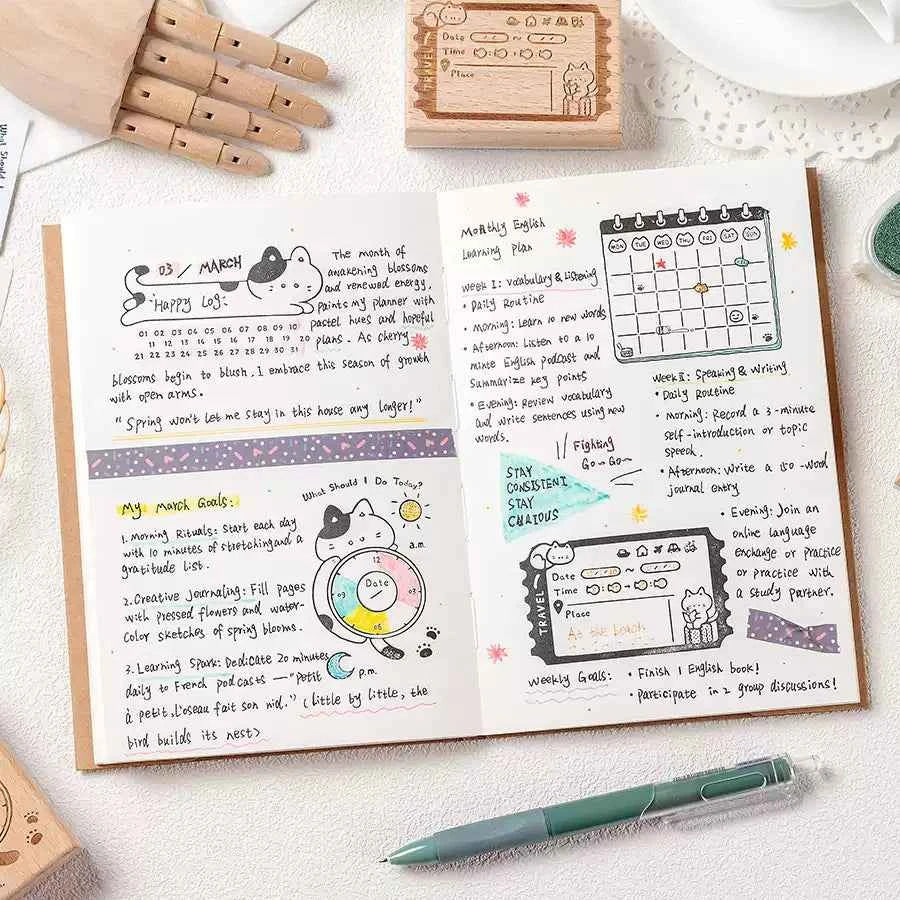 What Should I
TRAVEL
Date ~
Time
Place
03 / MARCH
Happy Log:
01 02 03 04 05 06 07 08 09 10
11 12 13 14 15 16 17 18 19 20
21 22 23 24 25 26 27 28 29 30 31
The month of
awakening blossoms
and renewed energy,
paints my planner with
pastel hues and hopeful
plans. As cherry
blossoms begin to blush, I embrace this season of growth
with open arms.
"Spring won't let me stay in this house any longer!"
My March Goals:
1. Morning Rituals: Start each day
with 10 minutes of stretching and a
gratitude list.
2. Creative journaling: Fill pages
with pressed flowers and water-
color sketches of spring blooms.
3. Learning Spark: Dedicate 20 minutes
daily to French podcasts — "Petit
à petit, L'oseau fait son nid." (little by little, the
bird builds its nest>
What Should I Do Today?
a.m.
12
03
Date
/
03
06
p.m.
Monthly English
Learning plan
Week I: Vocabulary & Listening
• Daily Routine
• Morning: Learn 10 new words
• Afternoon: Listen to a 10
minte English podcast and
summarize key points
• Evening: Review vocabulary
and write sentences using new
words.
MON TUE WED THU FRI SAT SUN
Fighting
Go~Go~
STAY
CONSISTENT
STAY
CUAIOUS
Week II: Speaking & Writing
• Daily Routine
• Morning: Record a 3-minute
self-introduction or topic
speech.
• Afternoon: Write a 150-word
journal entry
• Evening: Join an
online language
exchange or practice
or practice with
a study partner.
TRAVEL
Date ~
Time
Place
At the beach
Weekly Goals: • Finish 1 English book!
• participate in 2 group discussions!